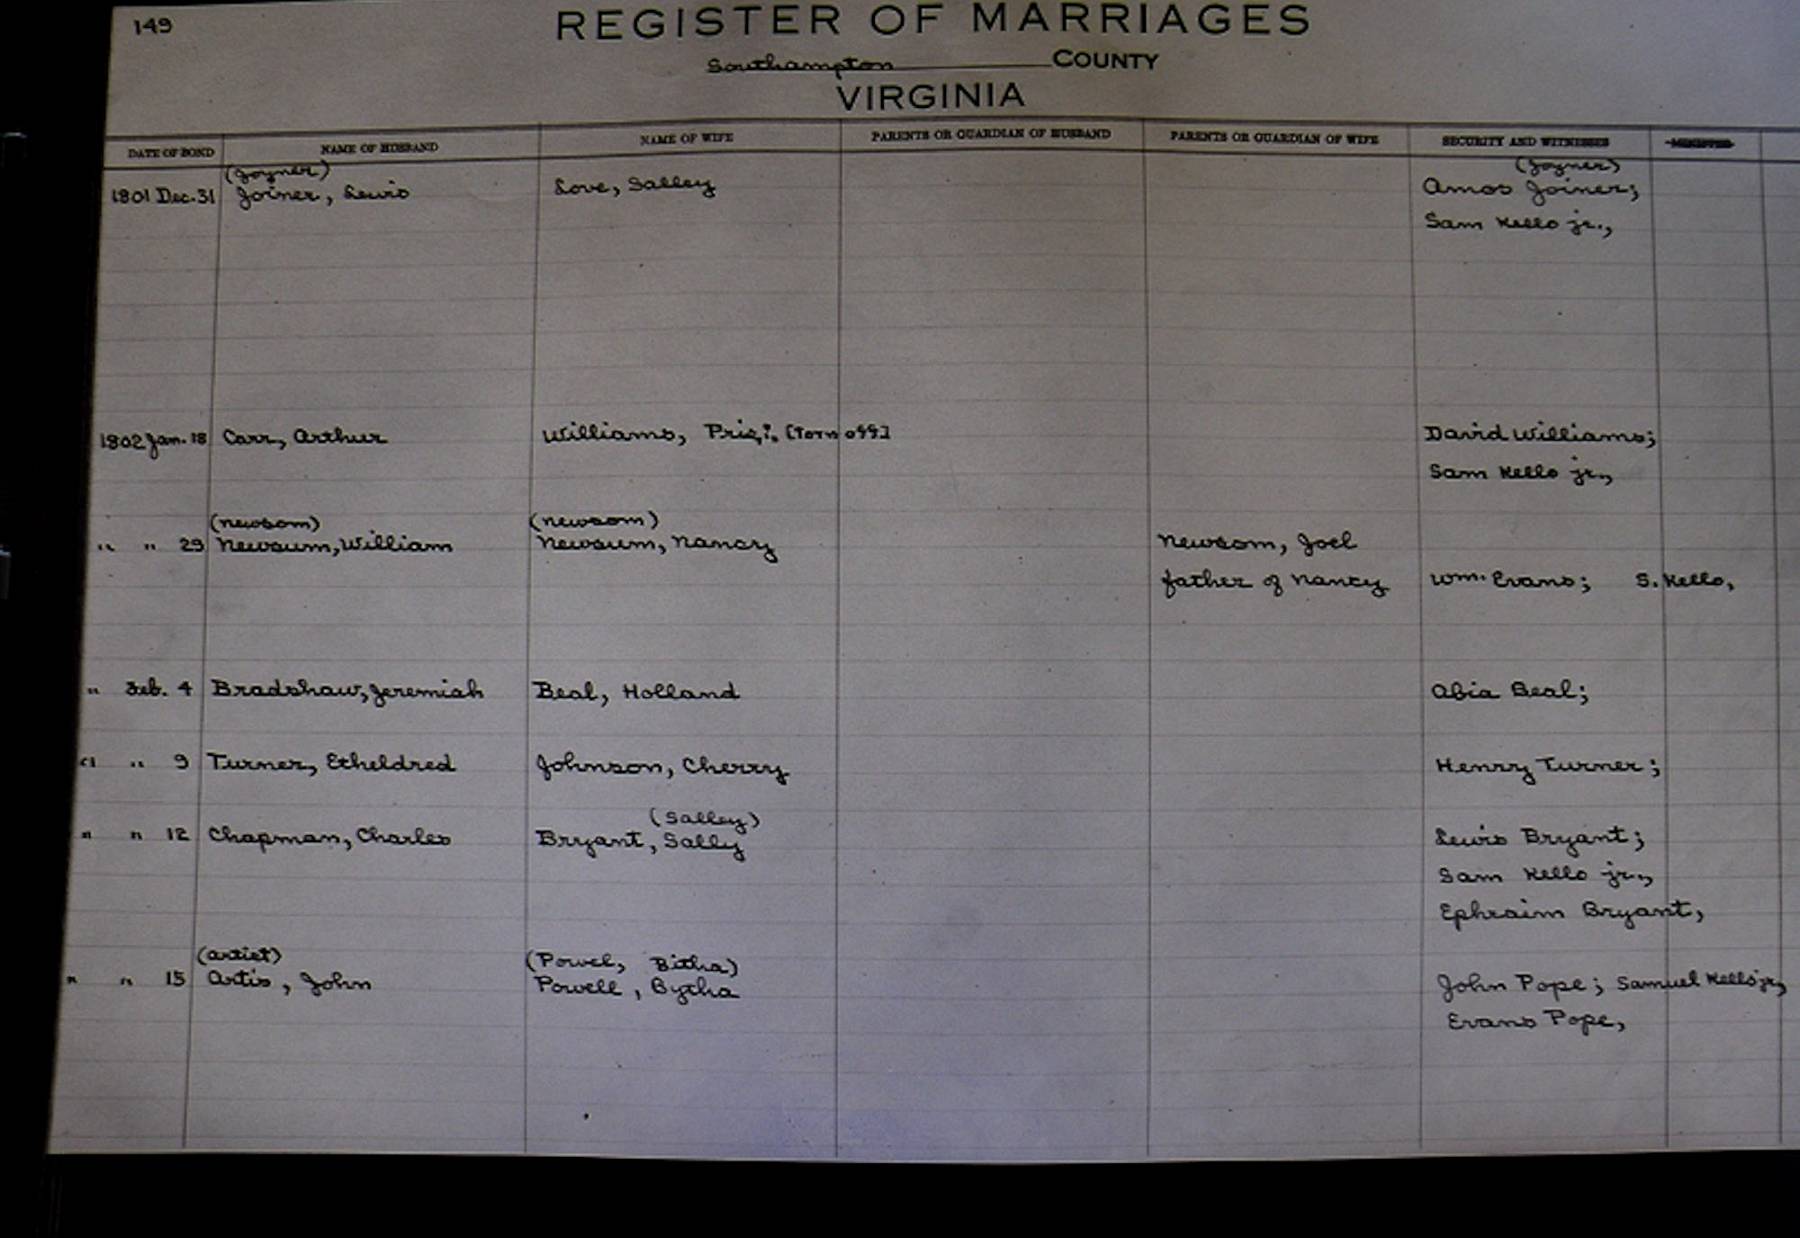 149
REGISTER OF MARRIAGES
Southampton COUNTY
VIRGINIA
DATE OF BOND NAME OF HUSBAND NAME OF WIFE PARENTS OR GUARDIAN OF HUSBAND PARENTS OR GUARDIAN OF WIFE SECURITY AND WITNESSES MINISTER
(Joyner) (Joyner)
1801 Dec. 31 Joiner, Lewis Love, Salley Amos Joiner;
Sam Kello jr.,
1802 Jan. 18 Carr, Arthur Williams, Priz?. [Torn off] David Williams;
Sam Kello jr.,
(Newsom) (Newsom)
" " 29 Newsum, William Newsum, Nancy Newsom, Joel
father of Nancy Wm. Evans; S. Kello,
" Feb. 4 Bradshaw, Jeremiah Beal, Holland Abia Beal;
" " 9 Turner, Etheldred Johnson, Cherry Henry Turner;
(Salley)
" " 12 Chapman, Charles Bryant, Sally Lewis Bryant;
Sam Kello jr.,
Ephraim Bryant,
(Artist) (Powel, Bitha)
" " 15 Artis, John Powell, Bytha John Pope; Samuel Kello jr,
Evans Pope,